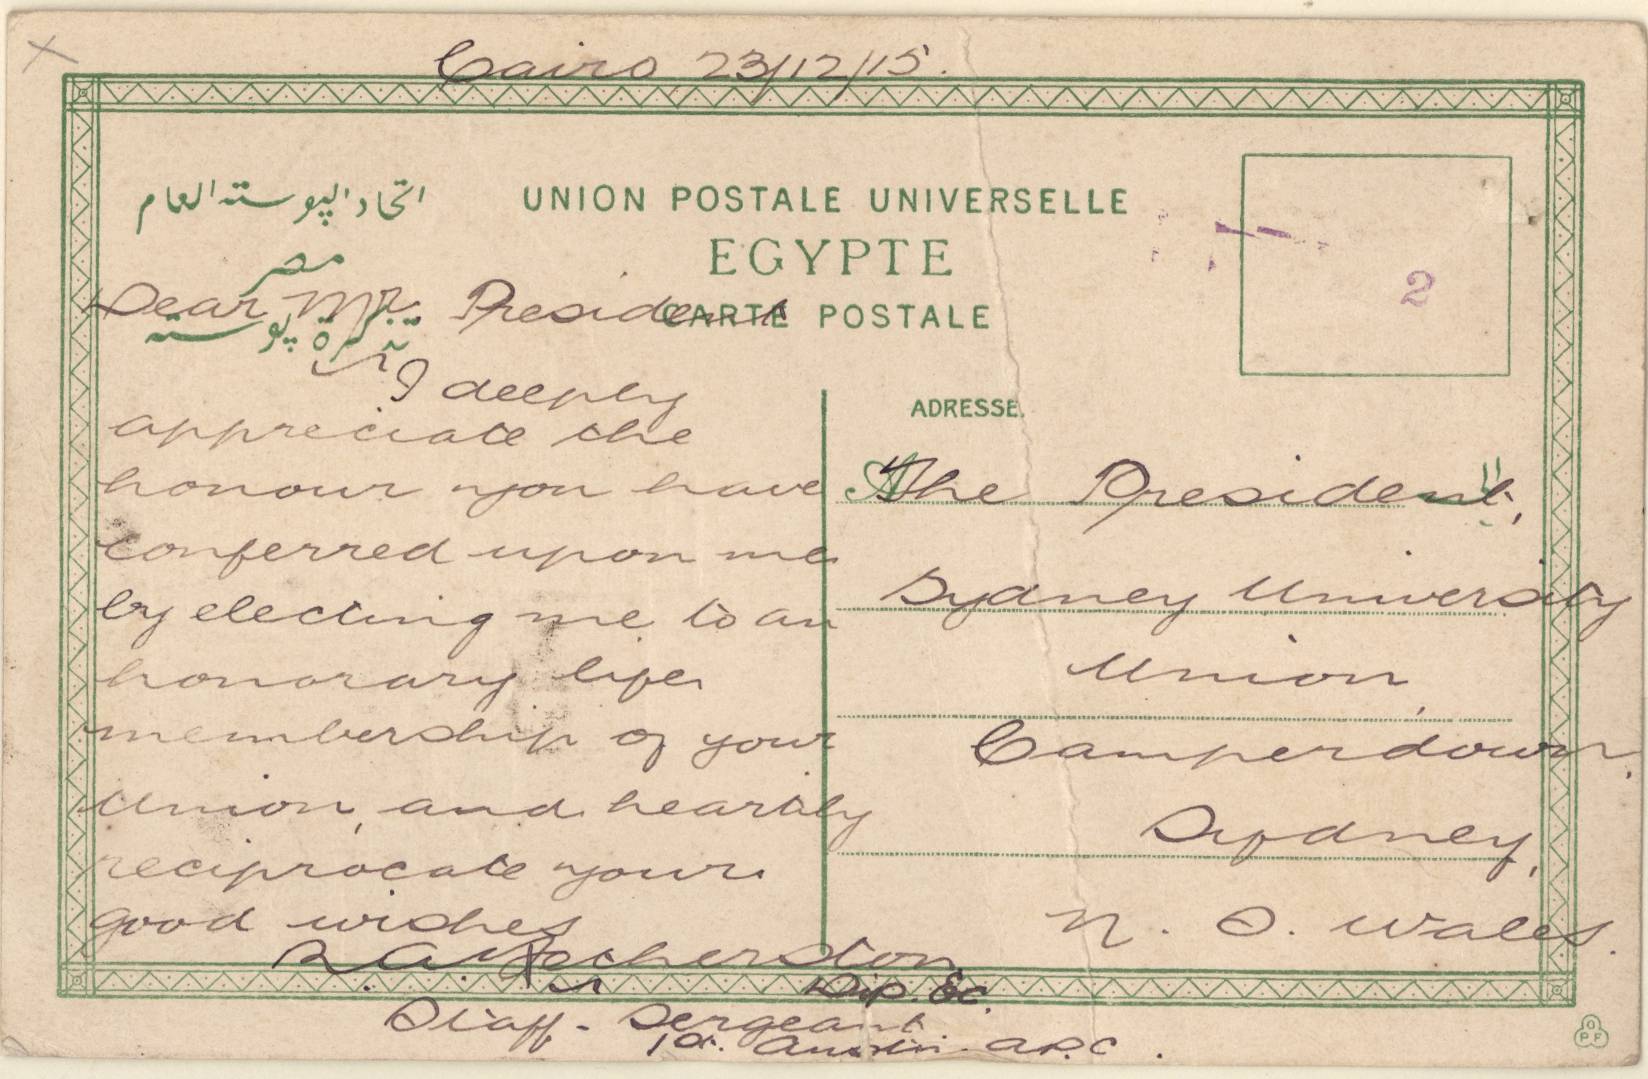 Cairo 23/12/15.
اتحاد البوسته العام
UNION POSTALE UNIVERSELLE
مصر
EGYPTE
تذكرة بوسته
CARTE POSTALE
2
Dear Mr. President
I deeply
appreciate the
honour you have
conferred upon me
by electing me to an
honorary life
membership of your
Union, and heartily
reciprocate your
good wishes
Dip. Ec.
Staff-Sergeant
A.P.C.
ADRESSE.
The President,
Sydney University
Union,
Camperdown,
Sydney,
N. S. Wales.
OPF